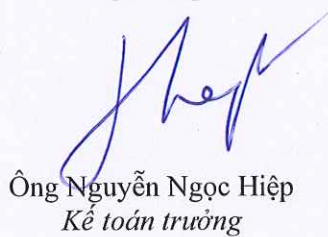 Ông Nguyễn Ngọc Hiệp
Kế toán trưởng